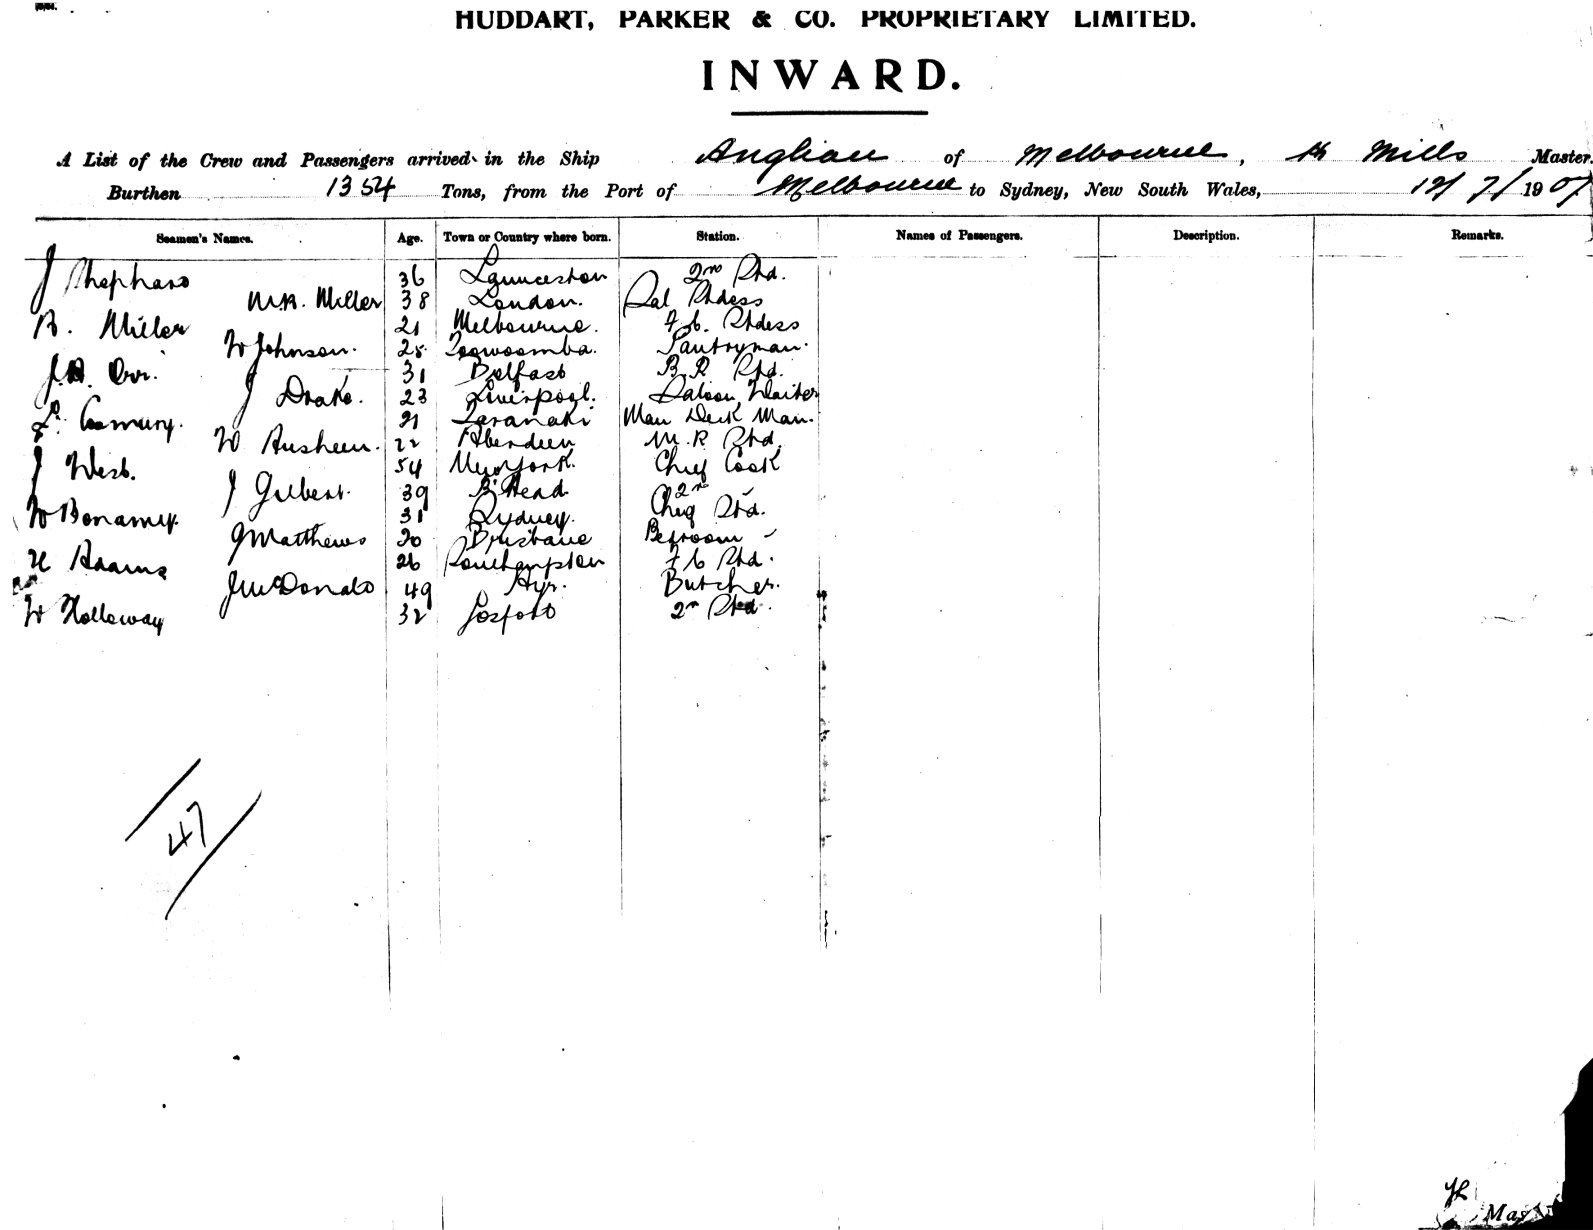 HUDDART, PARKER & CO. PROPRIETARY LIMITED.
INWARD.
A List of the Crew and Passengers arrived in the Ship Anglian of Melbourne, Mills Master
Burthen 1354 Tons, from the Port of Melbourne to Sydney, New South Wales, 12/7/1907
Seamen's Names. Age. Town or Country where born. Station. Names of Passengers. Description. Remarks.
J Shephard 36 Launceston 2nd Std.
M.A. Miller 38 London. Sal Stdess
B. Miller 21 Melbourne. F.C. Stdess
W Johnson. 25 Toowoomba. Pantryman.
J.A. Orr. 31 Belfast B.R Std.
J Drake. 23 Liverpool. Saloon Waiter
21 Taranaki Man Deck Man.
W 22 Aberdeen M.R Std
J West. 54 New York. Chief Cook
J Gilbert. 39 B'Head 2nd "
W Bonamy. 31 Sydney. Chief Std.
J Matthews 20 Brisbane Bedroom "
H Adams 26 Southampton F C Std.
J McDonald 49 Ayr. Butcher.
W Holloway 32 Gosford 2n Std.
47
Mas